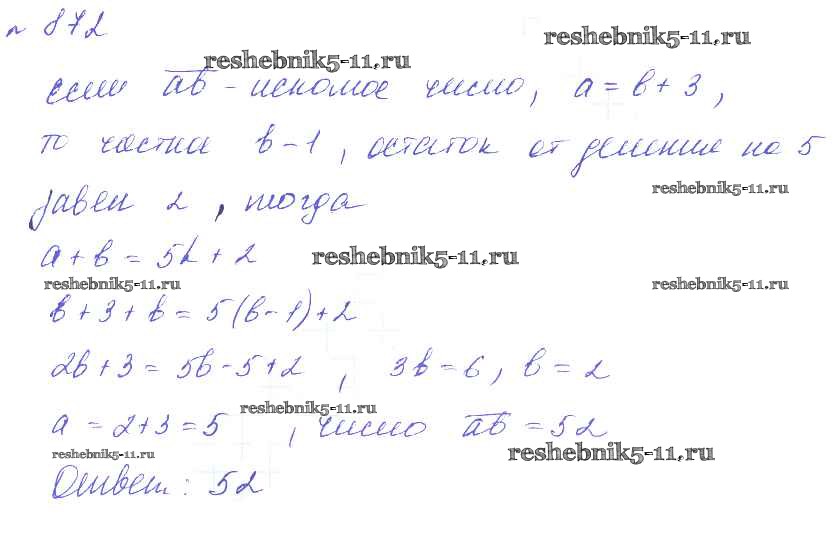 № 872
reshebnik5-11.ru
reshebnik5-11.ru
если ab - искомое число, a = b + 3,
то частное b - 1, остаток от деления на 5
reshebnik5-11.ru
равен 2, тогда
a + b = 5k + 2
reshebnik5-11.ru
reshebnik5-11.ru
reshebnik5-11.ru
b + 3 + b = 5(b - 1) + 2
2b + 3 = 5b - 5 + 2, 3b = 6, b = 2
reshebnik5-11.ru
a = 2 + 3 = 5, число ab = 52
reshebnik5-11.ru
reshebnik5-11.ru
Ответ: 52